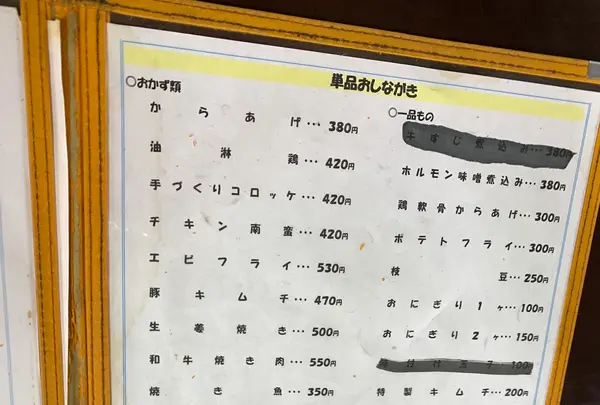 単品おしながき
○おかず類
からあげ…380円
油淋鶏…420円
手づくりコロッケ…420円
チキン南蛮…420円
エビフライ…530円
豚キムチ…470円
生姜焼き…500円
和牛焼き肉…550円
焼き魚…350円
○一品もの
牛すじ煮込み…380円
ホルモン味噌煮込み…380円
鶏軟骨からあげ…300円
ポテトフライ…300円
枝豆…250円
おにぎり1ヶ…100円
おにぎり2ヶ…150円
付け玉子…100円
特製キムチ…200円